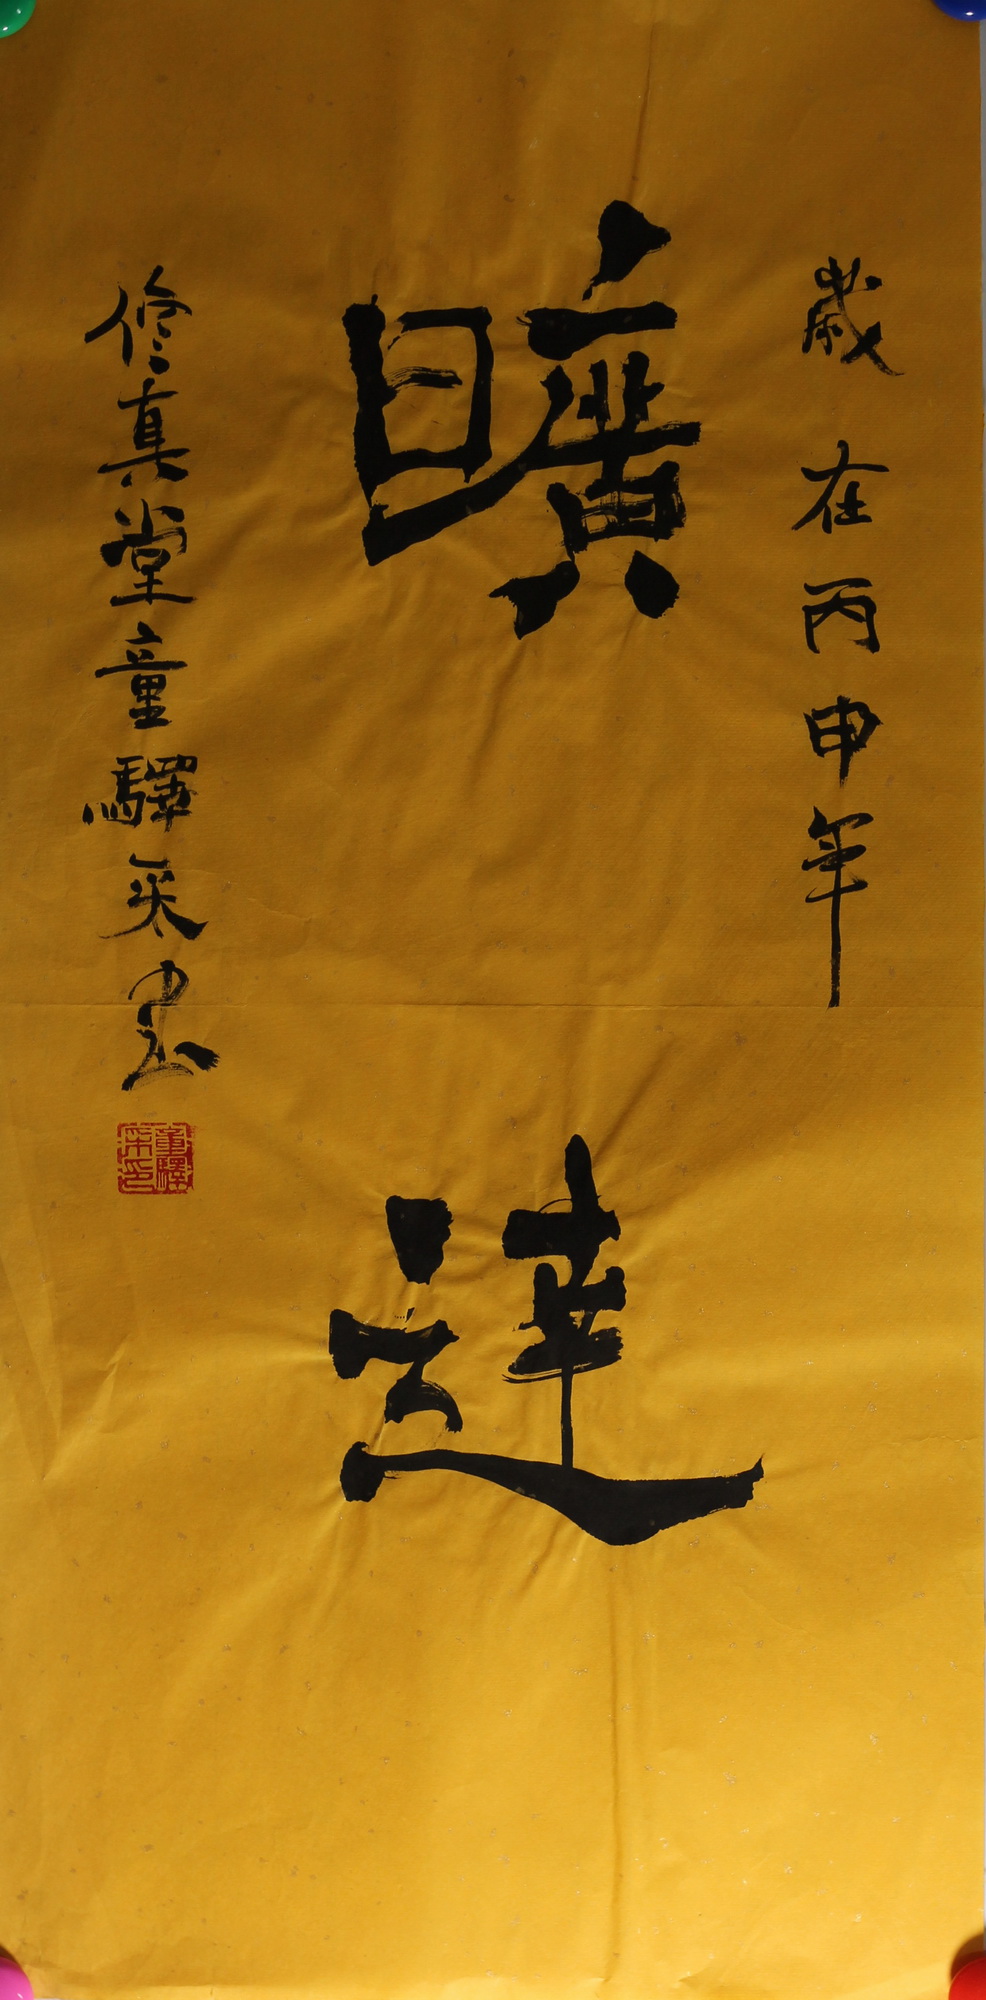 歲在丙申年
曠達
修真堂童驛采書
童驛采印